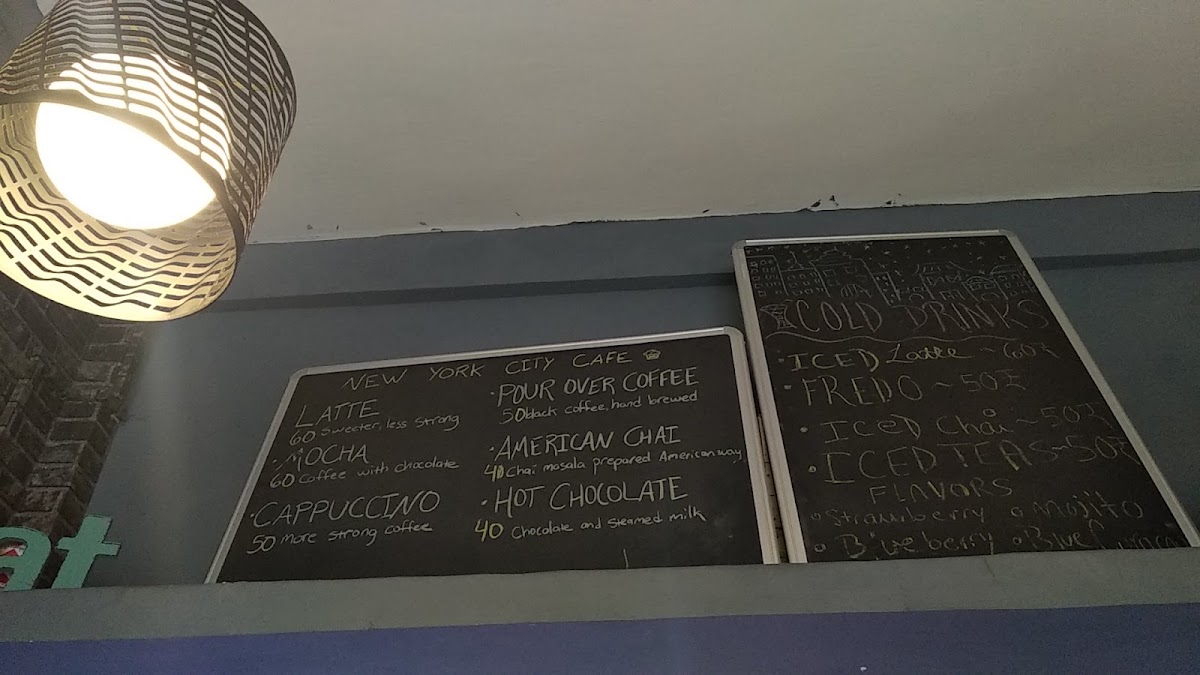 NEW YORK CITY CAFE
LATTE
60 Sweeter, less strong
·MOCHA
60 Coffee with chocolate
·CAPPUCCINO
50 More strong coffee
·POUR OVER COFFEE
50 black coffee, hand brewed
·AMERICAN CHAI
40 Chai masala prepared American way
·HOT CHOCOLATE
40 Chocolate and steamed milk
COLD DRINKS
·ICED Latte ~60₹
·FREDO ~50₹
·ICED Chai ~50₹
·ICED TEAS~50₹
FLAVORS
Strawberry Mojito
Blueberry Blue
at